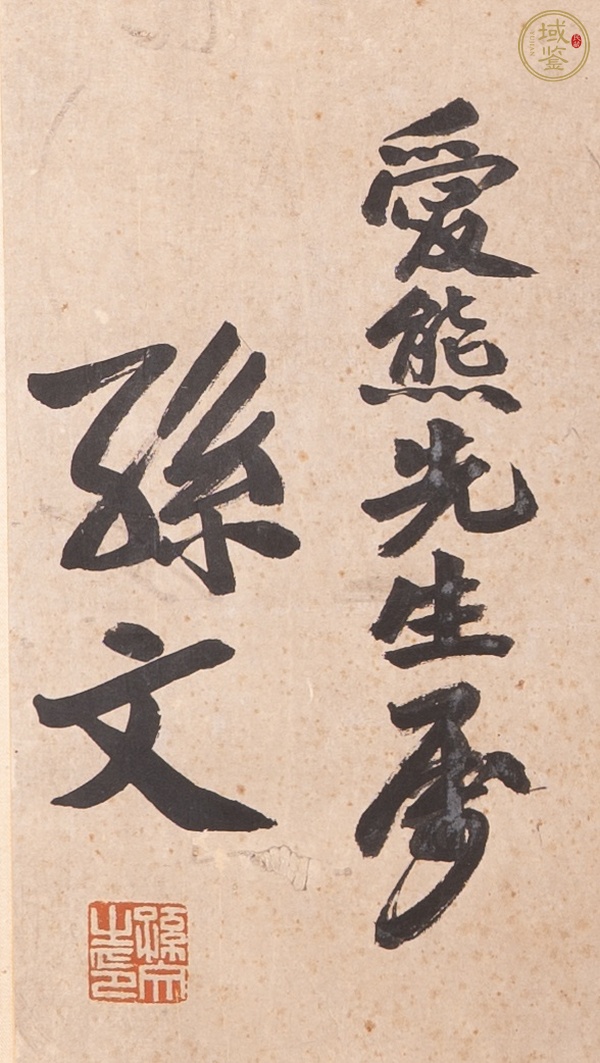 愛熊先生屬
孫文
孫文之印
域鉴